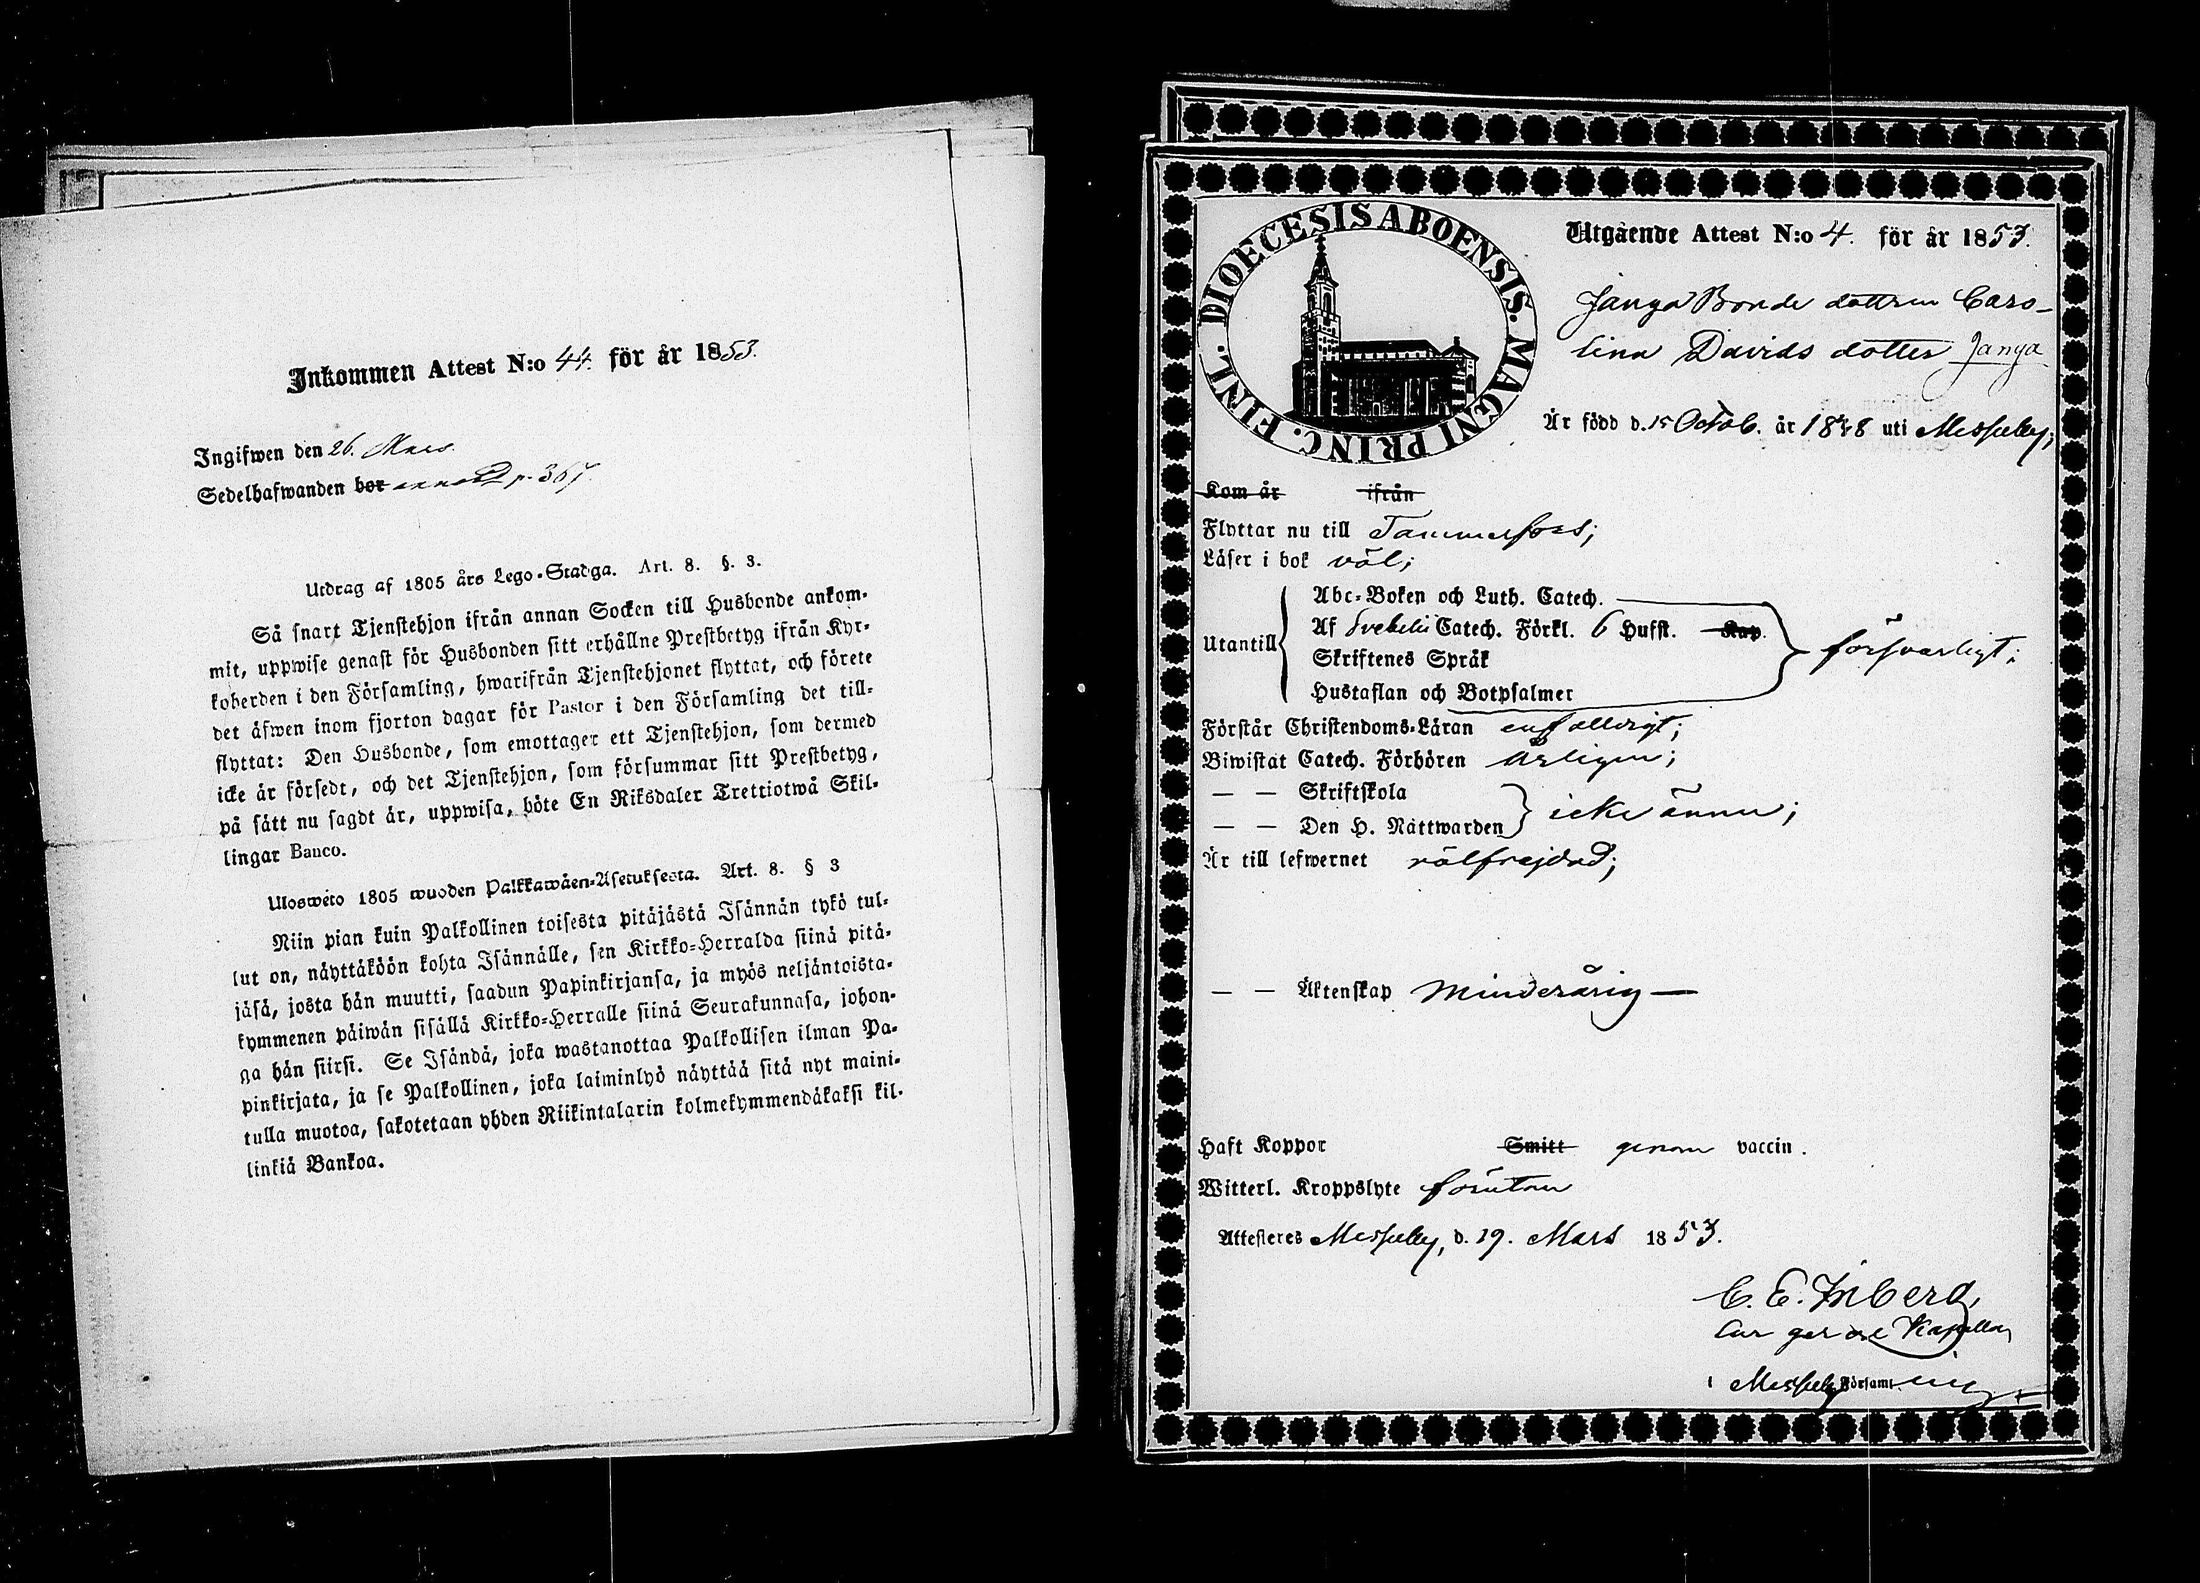 Inkommen Attest N:o 44. för år 1853.
Ingifwen den 26. Mars.
Sedelhafwanden bor annot D p. 367.
Utdrag af 1805 års Lego-Stadga. Art. 8. §. 3.
Så snart Tjenstehjon ifrån annan Socken till Husbonde ankom-
mit, uppwise genast för Husbonden sitt erhållne Prestbetyg ifrån Kyr-
koherden i den Församling, hwarifrån Tjenstehjonet flyttat, och förete
det äfwen inom fjorton dagar för Pastor i den Församling det till-
flyttat: Den Husbonde, som emottager ett Tjenstehjon, som dermed
icke är försedt, och det Tjenstehjon, som försummar sitt Prestbetyg,
på sätt nu sagdt är, uppwisa, böte En Riksdaler Trettiotwå Skil-
lingar Banco.
Uloswéto 1805 wuoden Palkkawäen-Asetuksesta. Art. 8. § 3
Niin pian kuin Palkollinen toisesta pitäjästä Isännän tykö tul-
lut on, näyttäköön kohta Isännälle, sen Kirkko-Herralda siinä pitä-
jäsä, josta hän muutti, saadun Papinkirjansa, ja myös neljäntoista-
kymmenen päiwän sisällä Kirkko-Herralle siinä Seurakunnasa, johon-
ga hän siirsi. Se Isändä, joka wastanottaa Palkollisen ilman Pa-
pinkirjata, ja se Palkollinen, joka laiminlyö näyttää sitä nyt maini-
tulla muotoa, sakotetaan yhden Riikintalarin kolmekymmendäkaksi kil-
linkiä Bankoa.
DIOECESIS ABOENSIS. MAGNI PRINC. FINL.
Utgående Attest N:o 4. för år 1853.
Janga Bonde dottren Caro-
lina Davids dotter Janga
Är född d. 15 Octob. år 1848 uti Messuby;
Kom år ifrån
Flyttar nu till Tammerfors;
Läser i bok väl;
Abc-Boken och Luth. Catech.
Utantill Af Svebelii Catech. Förkl. 6 Hufst. Kap. försvarligt;
Skriftenes Språk
Hustaflan och Botpsalmer
Förstår Christendoms-Läran enfalldigt;
Biwistat Catech. Förhören årligen;
— — Skriftskola
— — Den H. Nattwarden icke ännu;
Är till lefwernet välfrejdad;
— — Äktenskap minderårig —
Haft Koppor Smitt genom vaccin.
Witterl. Kroppslyte förutan
Attesteres Messuby, d. 19. Mars 1853.
C. E. Inberg
Kapellan
i Messuby Församl.